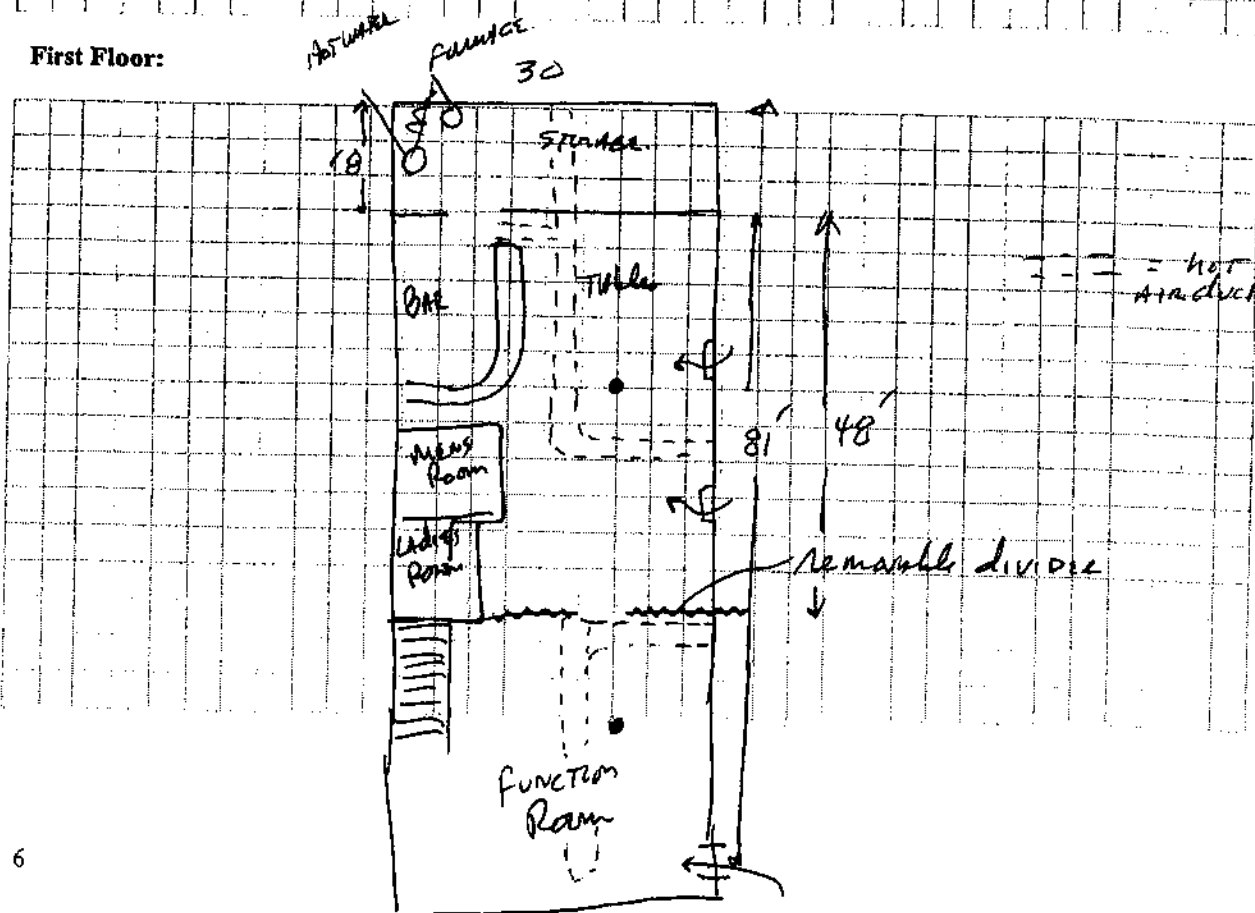 First Floor:
HOT WATER
FURNACE
30
18
STORAGE
BAR
Tables
= hot
AIR duct
81'
48'
MENS
Room
LADIES
Room
removable divider
FUNCTION
Room
6